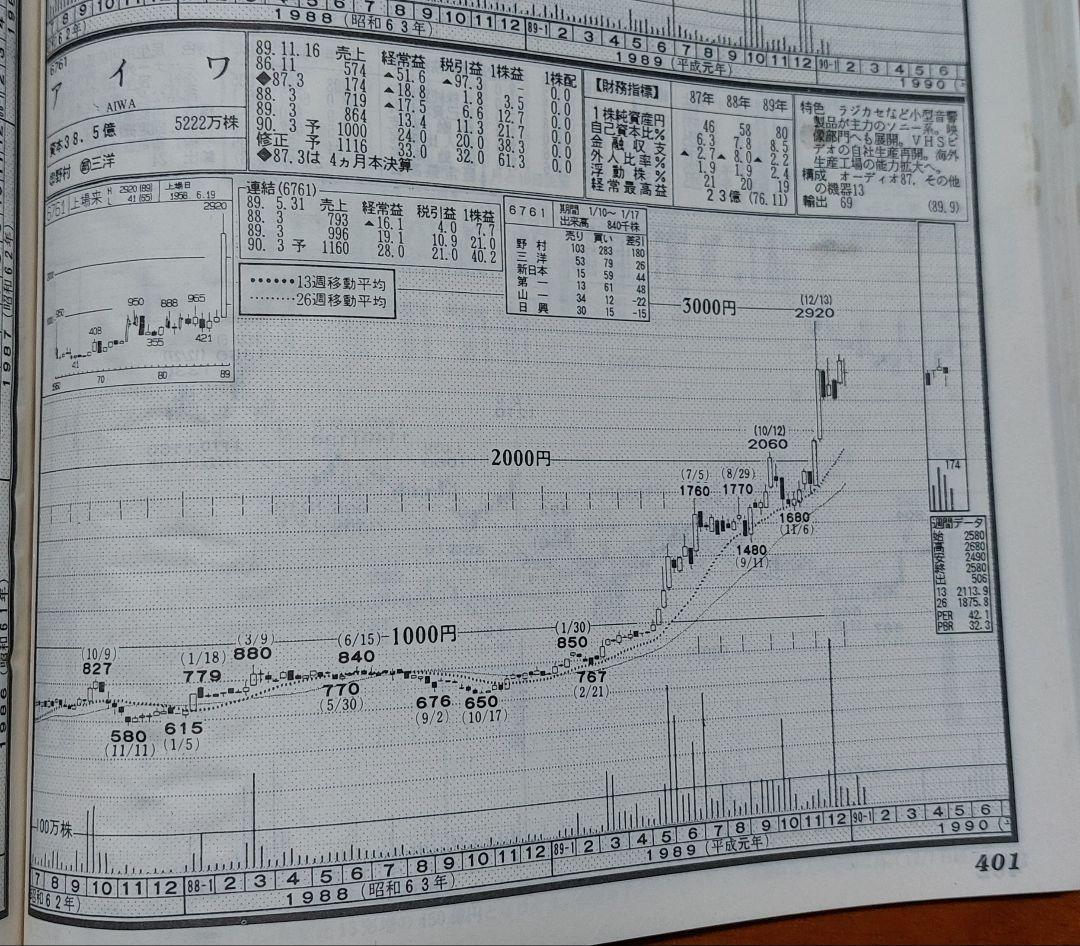 5 6 7 8 9 10 11 12 89-1 2 3 4 5 6 7 8 9 10 11 12 90-1 2 3 4 5 6
1988 (昭和63年) 1989 (平成元年) 1990
6761
アイワ
AIWA
資本38.5億 5222万株
野村 三洋
89.11.16 売上 経常益 税引益 1株益 1株配
86.11 574 ▲51.6 ▲97.3 - 0.0
◆87.3 174 ▲18.8 1.8 3.5 0.0
88.3 719 ▲17.5 6.6 12.7 0.0
89.3 864 13.4 11.3 21.7 0.0
90.3予 1000 24.0 20.0 38.3 0.0
修正予 1116 53.0 32.0 61.3 0.0
◆87.3は 4ヵ月本決算
【財務指標】 87年 88年 89年
1株純資産円 46 58 80
自己資本比% 6.3 7.8 8.5
金融収支 ▲2.7 ▲8.0 ▲2.2
外人比率% 1.9 1.9 2.4
浮動株% 21 20 19
経常最高益 23億(76.11)
特色 ラジカセなど小型音響
製品が主力のソニー系。映
像部門へも展開。VHSビ
デオの自社生産再開。海外
生産工場の能力拡大へ。
構成 オーディオ87、その他
の機器13
輸出 69 (89.9)
6761 上場来 H 2920(89) L 41(65) 上場日 1958. 6.19
2920
950 888 965
408
355 421
41
70 80 89
連結(6761)
89.5.31 売上 経常益 税引益 1株益
88.3 793 ▲16.1 4.0 7.7
89.3 996 19.1 10.9 21.0
90.3予 1160 28.0 21.0 40.2
13週移動平均
26週移動平均
6761 期間 1/10〜1/17
出来高 840千株
売り 買い 差引
野村 103 283 180
三洋 53 79 26
新日本 15 59 44
第一 13 61 48
山一 34 12 -22
日興 30 15 -15
3000円
(12/13)
2920
(10/12)
2060
2000円
(7/5) (8/29)
1760 1770
1680
(11/6)
1480
(9/11)
174
週間データ
始 2580
高 2680
安 2490
終 2580
出 506
13 2113.9
26 1875.8
PER 42.1
PBR 32.3
1000円
(10/9)
827
(1/18)
779
(3/9)
880
(6/15)
840
(1/30)
850
580
(11/11)
615
(1/5)
770
(5/30)
676
(9/2)
650
(10/17)
767
(2/21)
100万株
7 8 9 10 11 12 88-1 2 3 4 5 6 7 8 9 10 11 12 89-1 2 3 4 5 6 7 8 9 10 11 12 90-1 2 3 4 5 6
昭和62年) 1988 (昭和63年) 1989 (平成元年) 1990
401